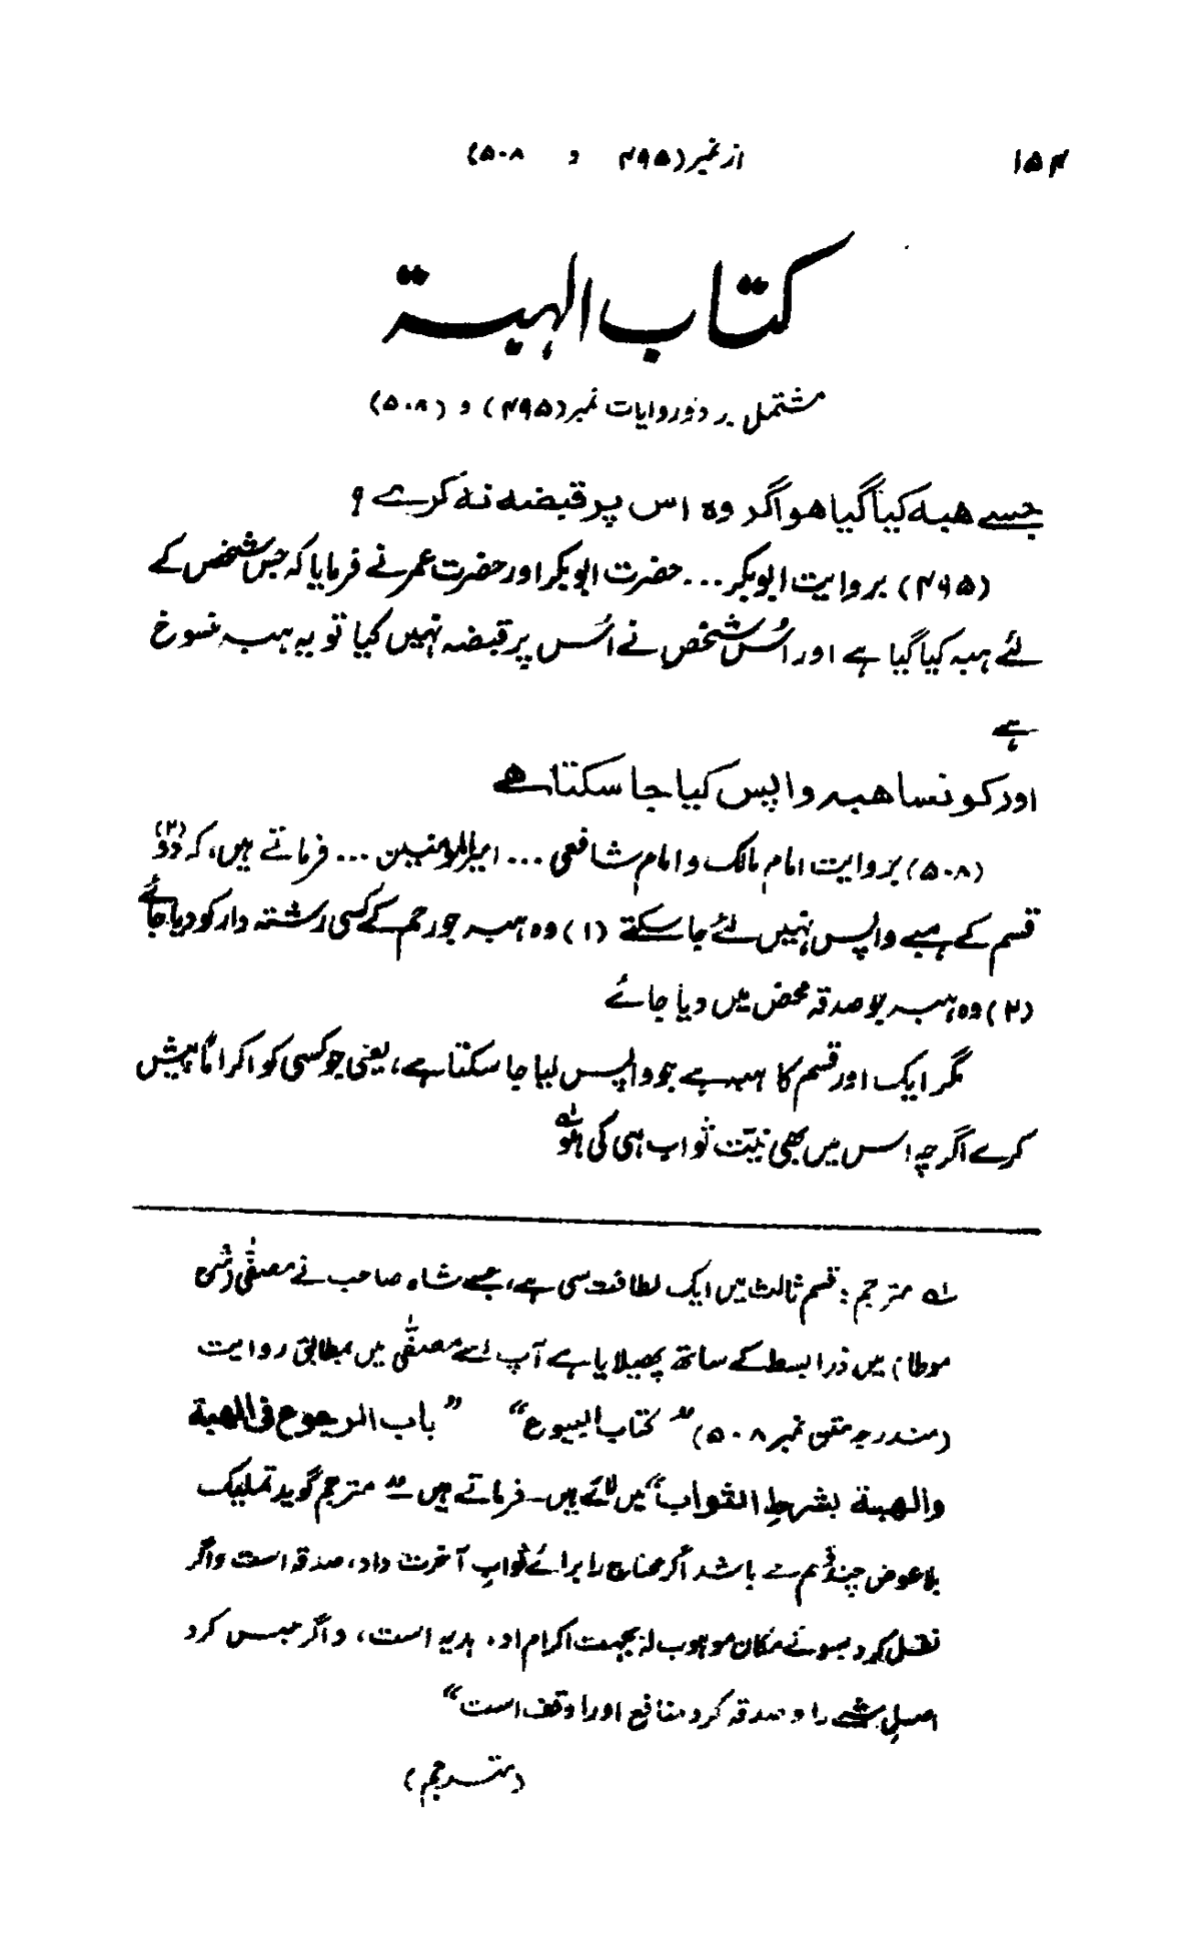 ۱۵۴ از نمبر (۴۹۵ و ۵۰۸)
کتاب الہبۃ
مشتمل بر دو روایات نمبر (۴۹۵) و (۵۰۸)
جسے ھبہ کیا گیا ھو اگر وہ اس پر قبضہ نہ کرے؟
(۴۹۵) بروایت ابوبکر ... حضرت ابوبکر اور حضرت عمر نے فرمایا کہ جس شخص کے
لئے ہبہ کیا گیا ہے اور اُس شخص نے اُس پر قبضہ نہیں کیا تو یہ ہبہ منسوخ
ہے
اور کونسا ھبہ واپس کیا جا سکتا ھے
(۵۰۸) بروایت امام مالک و امام شافعی ... امیرالمومنین ... فرماتے ہیں، کہ دو (۲)
قسم کے ہبے واپس نہیں لئے جا سکتے (۱) وہ ہبہ جو رحم کے کسی رشتہ دار کو دیا جائے
(۲) وہ ہبہ جو صدقہ محض میں دیا جائے
مگر ایک اور قسم کا ہبہ ہے جو واپس لیا جا سکتا ہے، یعنی جو کسی کو اکراماً پیش
کرے اگرچہ اس میں بھی نیّت ثواب ہی کی ہو لہ
لہ مترجم: قسم ثالث میں ایک لطافت سی ہے، جسے شاہ صاحب نے مصفّٰی (شرح
موطا) میں ذرا بسط کے ساتھ پھیلایا ہے آپ اسے مصفّٰی میں بمطابق روایت
(مندرجہ متن نمبر ۵۰۸) "کتاب البیوع" "باب الرجوع فی الھبۃ
والھبۃ بشرطِ الثواب" میں لائے ہیں۔ فرماتے ہیں ـ" مترجم گوید تملیک
بلا عوض چند قسم مے باشد اگر محتاج را برائے ثوابِ آخرت داد، صدقہ است واگر
نقل کرد بسوئے مکان موہوب لہٗ بجہت اکرام او، ہدیہ است، واگر حبس کرد
اصلِ شے را و صدقہ کرد منافع اورا وقف است"
(مترجم)